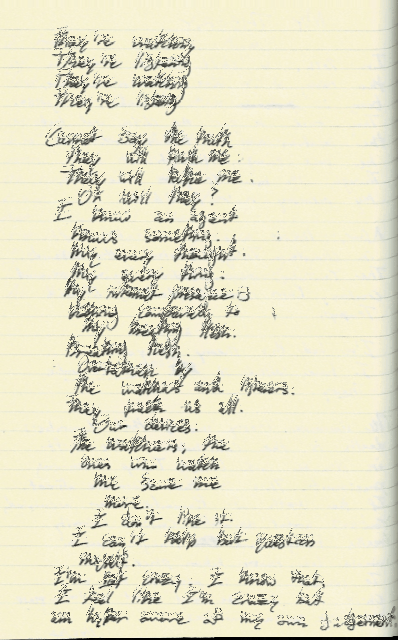 They're watching
They're listening
They're watching
They're listening
Cannot say the truth
They will push me.
They will take me.
Or will they?
I know an agent
knows something.
My every thought.
My every move.
My internet presence is
nothing compared to
my breathing flesh.
Breathing flesh.
Overtaken by
the watchers and listeners.
They watch us all.
Our devices.
The watchers, the
ones who watch
the same me
more
I don't like it.
I can't help but question
myself.
I'm not crazy. I know that,
I feel like I'm crazy but
am hyper aware of my own judgement.